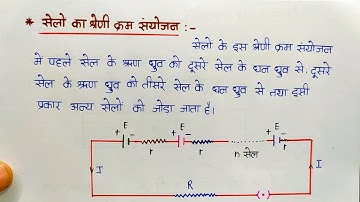 * सेलो का श्रेणी क्रम संयोजन :-
सेलो के इस श्रेणी क्रम संयोजन
में पहले सेल के ऋण ध्रुव को दूसरे सेल के धन ध्रुव से, दूसरे
सेल के ऋण ध्रुव को तीसरे सेल के धन ध्रुव से तथा इसी
प्रकार अन्य सेलो को जोड़ा जाता है।
E E E
+ - + - + -
r r n सेल r
I R I